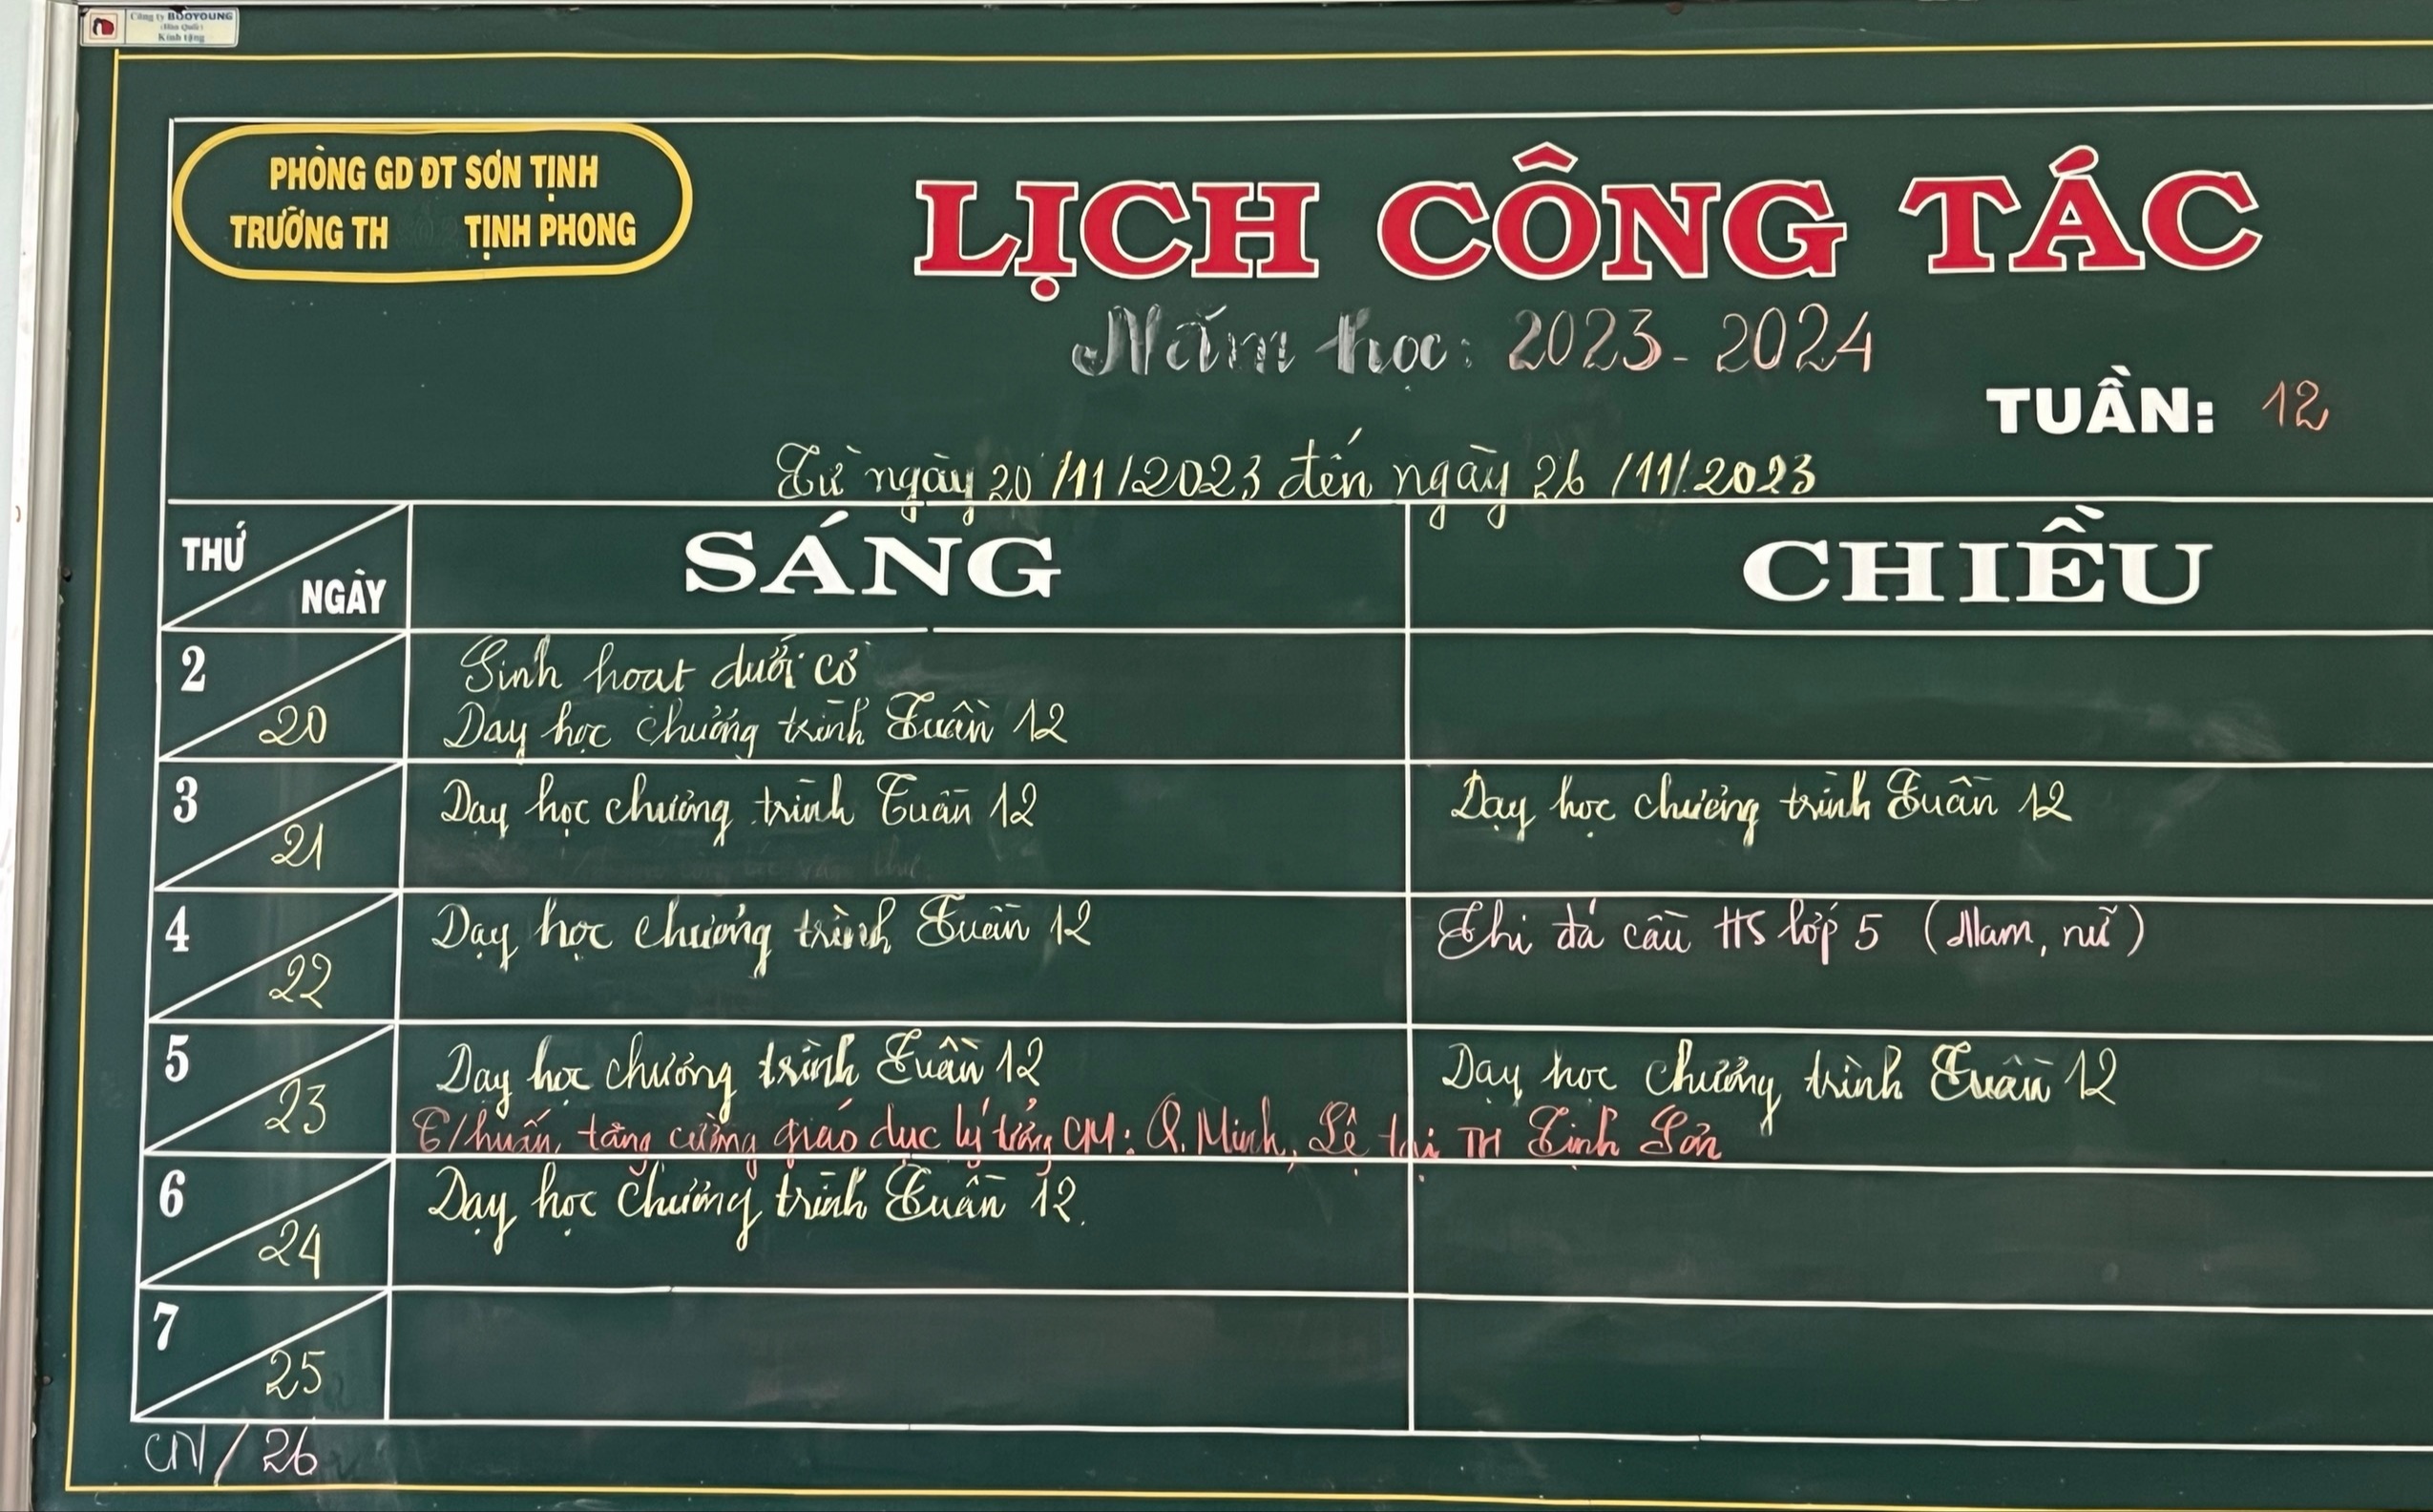 Công ty BOOYOUNG
(Hàn Quốc)
Kính tặng
PHÒNG GD ĐT SƠN TỊNH
TRƯỜNG TH TỊNH PHONG
LỊCH CÔNG TÁC
Năm học: 2023-2024
TUẦN: 12
Từ ngày 20/11/2023 đến ngày 26/11/2023
THỨ NGÀY SÁNG CHIỀU
2 20
Sinh hoạt dưới cờ
Dạy học chương trình Tuần 12
3 21
Dạy học chương trình Tuần 12
Dạy học chương trình Tuần 12
4 22
Dạy học chương trình Tuần 12
Thi đá cầu HS lớp 5 (Nam, nữ)
5 23
Dạy học chương trình Tuần 12
Dạy học chương trình Tuần 12
T/huấn tăng cường giáo dục lý tưởng CM: Q. Minh, Lệ tại TH Tịnh Sơn
6 24
Dạy học chương trình Tuần 12.
7 25
CN/26